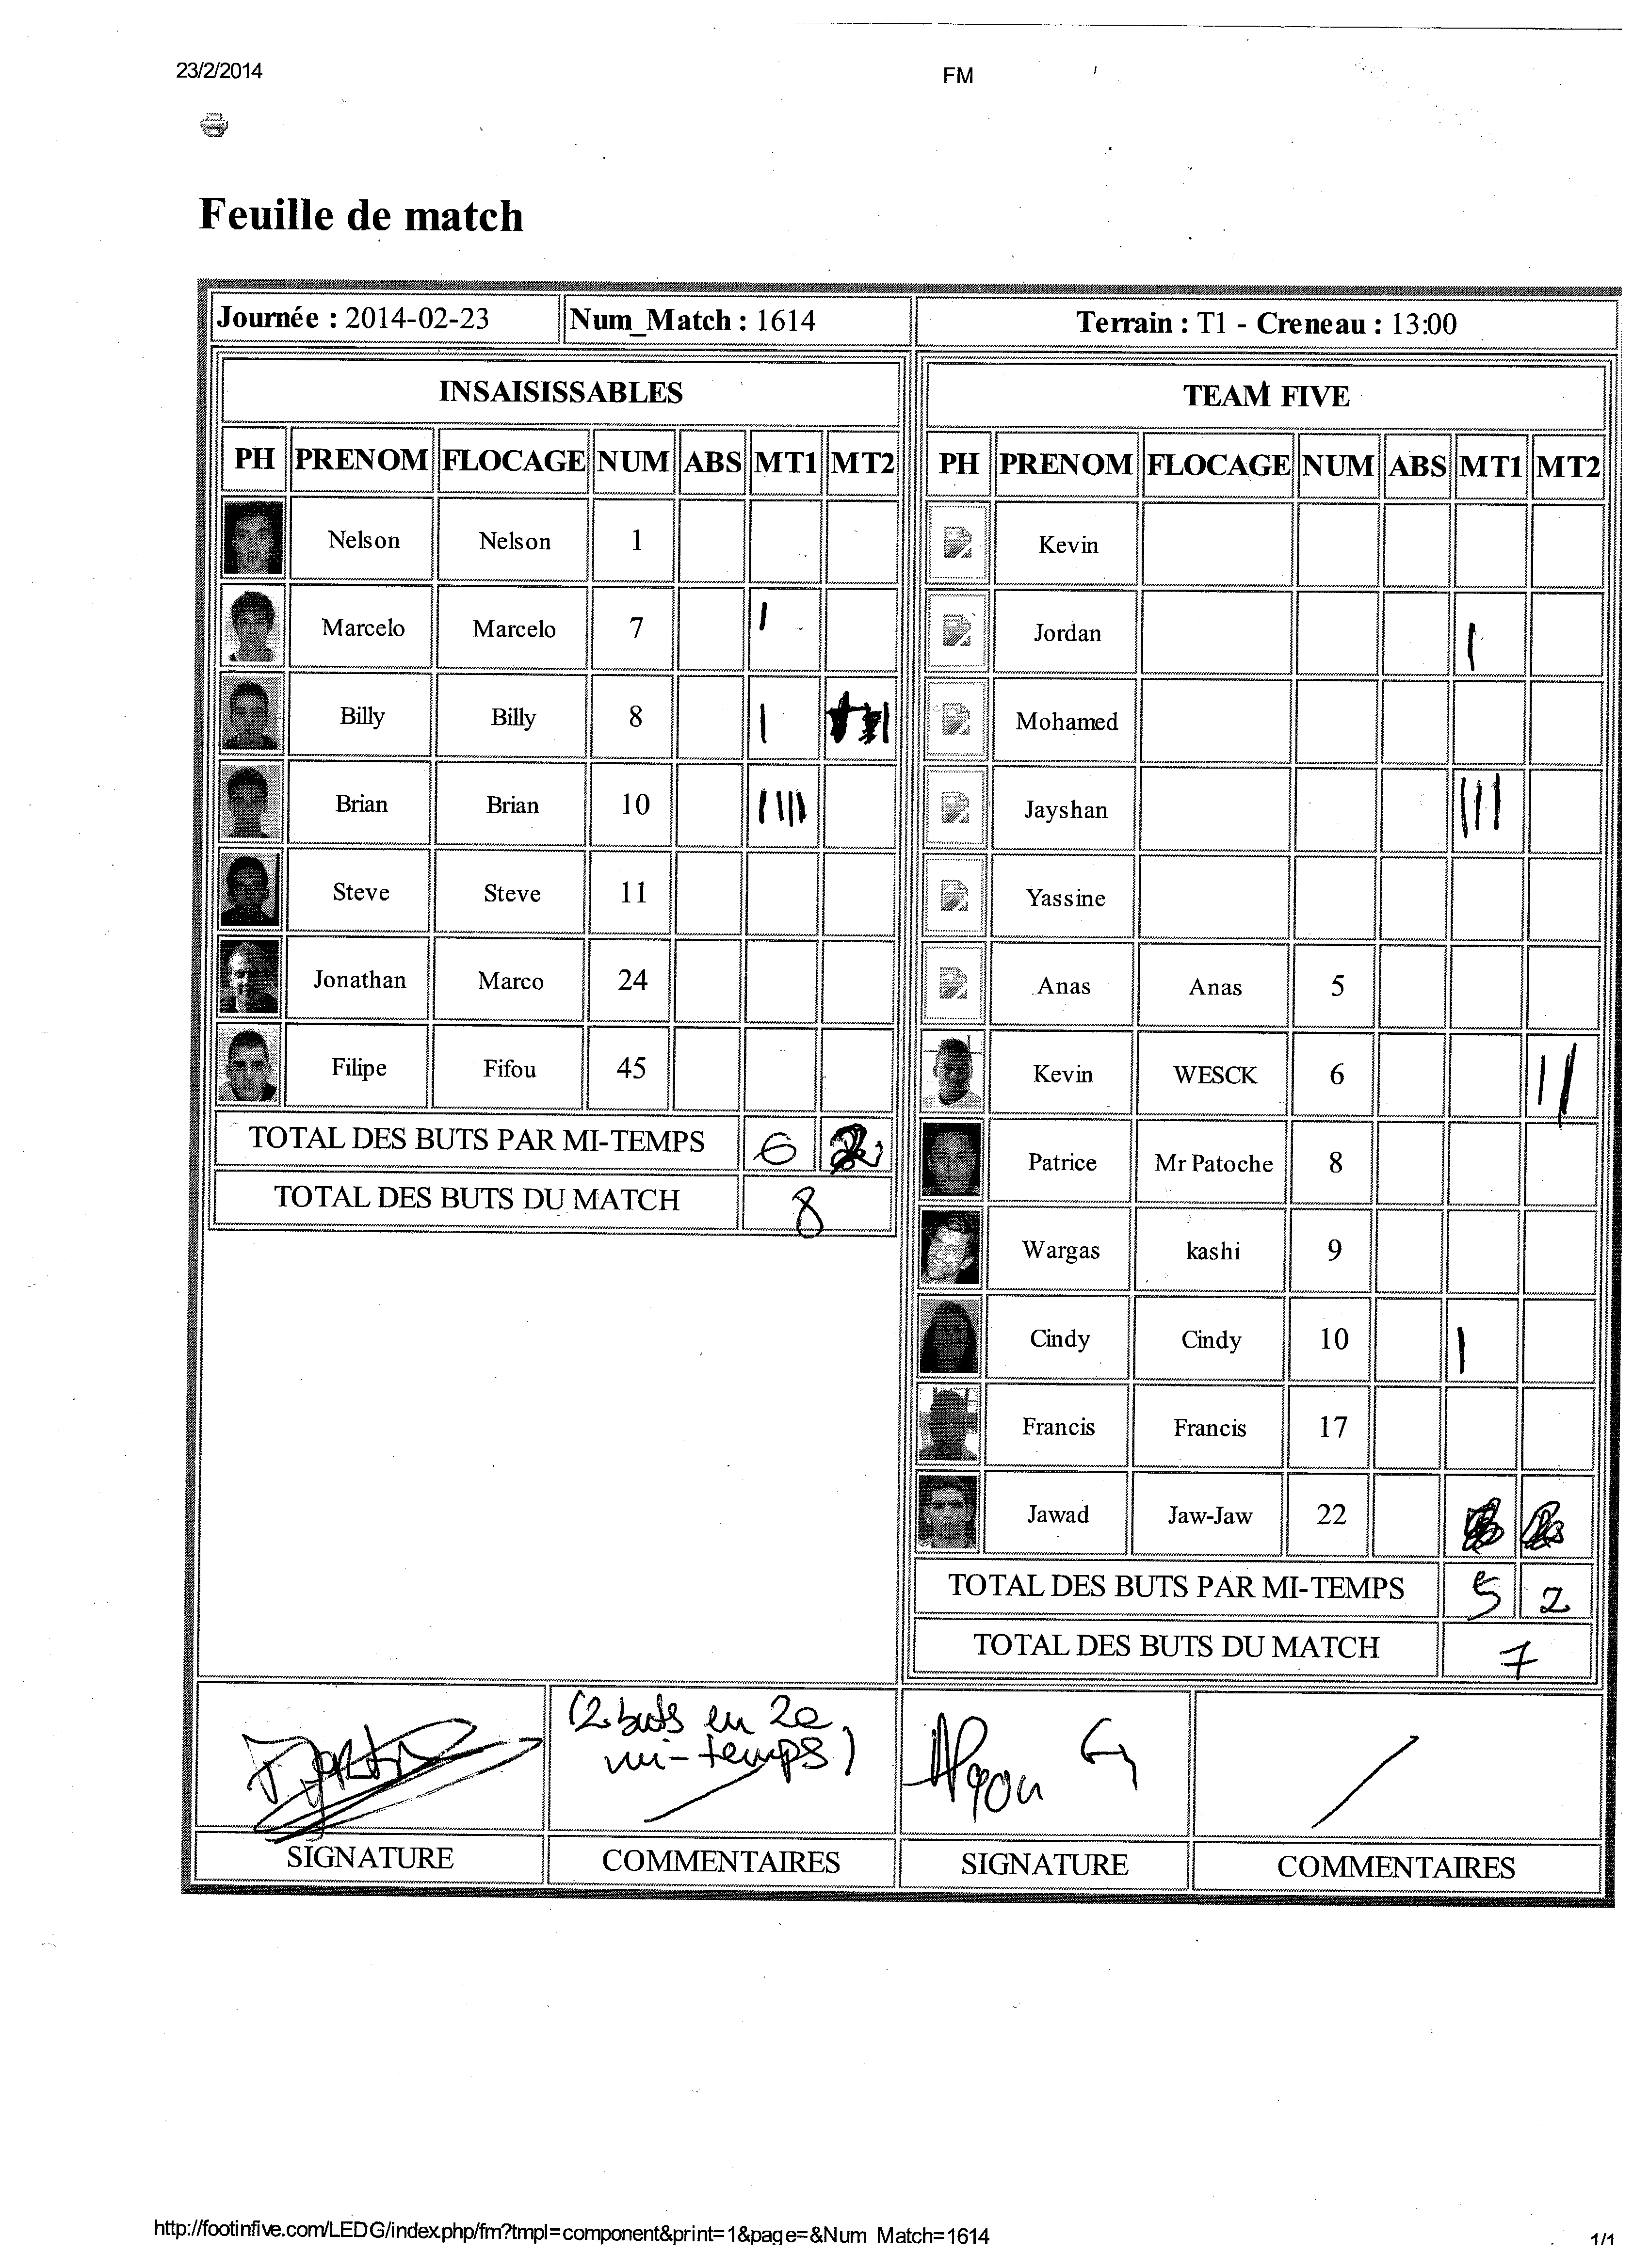 23/2/2014 FM
Feuille de match
Journée : 2014-02-23 Num_Match : 1614 Terrain : T1 - Creneau : 13:00
INSAISISSABLES
PH PRENOM FLOCAGE NUM ABS MT1 MT2
Nelson Nelson 1
Marcelo Marcelo 7 I
Billy Billy 8 I
Brian Brian 10 IIII
Steve Steve 11
Jonathan Marco 24
Filipe Fifou 45
TOTAL DES BUTS PAR MI-TEMPS 6
TOTAL DES BUTS DU MATCH 8
TEAM FIVE
PH PRENOM FLOCAGE NUM ABS MT1 MT2
Kevin
Jordan I
Mohamed
Jayshan III
Yassine
Anas Anas 5
Kevin WESCK 6 II
Patrice Mr Patoche 8
Wargas kashi 9
Cindy Cindy 10 I
Francis Francis 17
Jawad Jaw-Jaw 22
TOTAL DES BUTS PAR MI-TEMPS 5 2
TOTAL DES BUTS DU MATCH 7
(2 buts en 2e
mi-temps)
SIGNATURE COMMENTAIRES SIGNATURE COMMENTAIRES
http://footinfive.com/LEDG/index.php/fm?tmpl=component&print=1&page=&Num_Match=1614 1/1